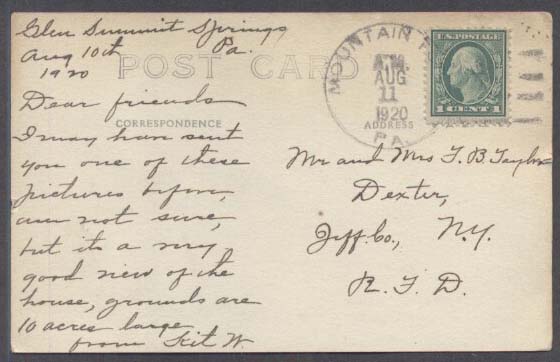 Glen Summit Springs
Pa.
Aug 10th
1920
POST CARD
Dear friends
CORRESPONDENCE
I may have sent
you one of these
pictures before,
am not sure,
but its a very
good view of the
house, grounds are
10 acres large
from Kit W
MOUNTAIN
A.M.
AUG
11
1920
PA.
ADDRESS
U.S. POSTAGE
1 CENT 1
Mr and Mrs F. B Taylor
Dexter,
Jeff. Co., N.Y.
R. F. D.